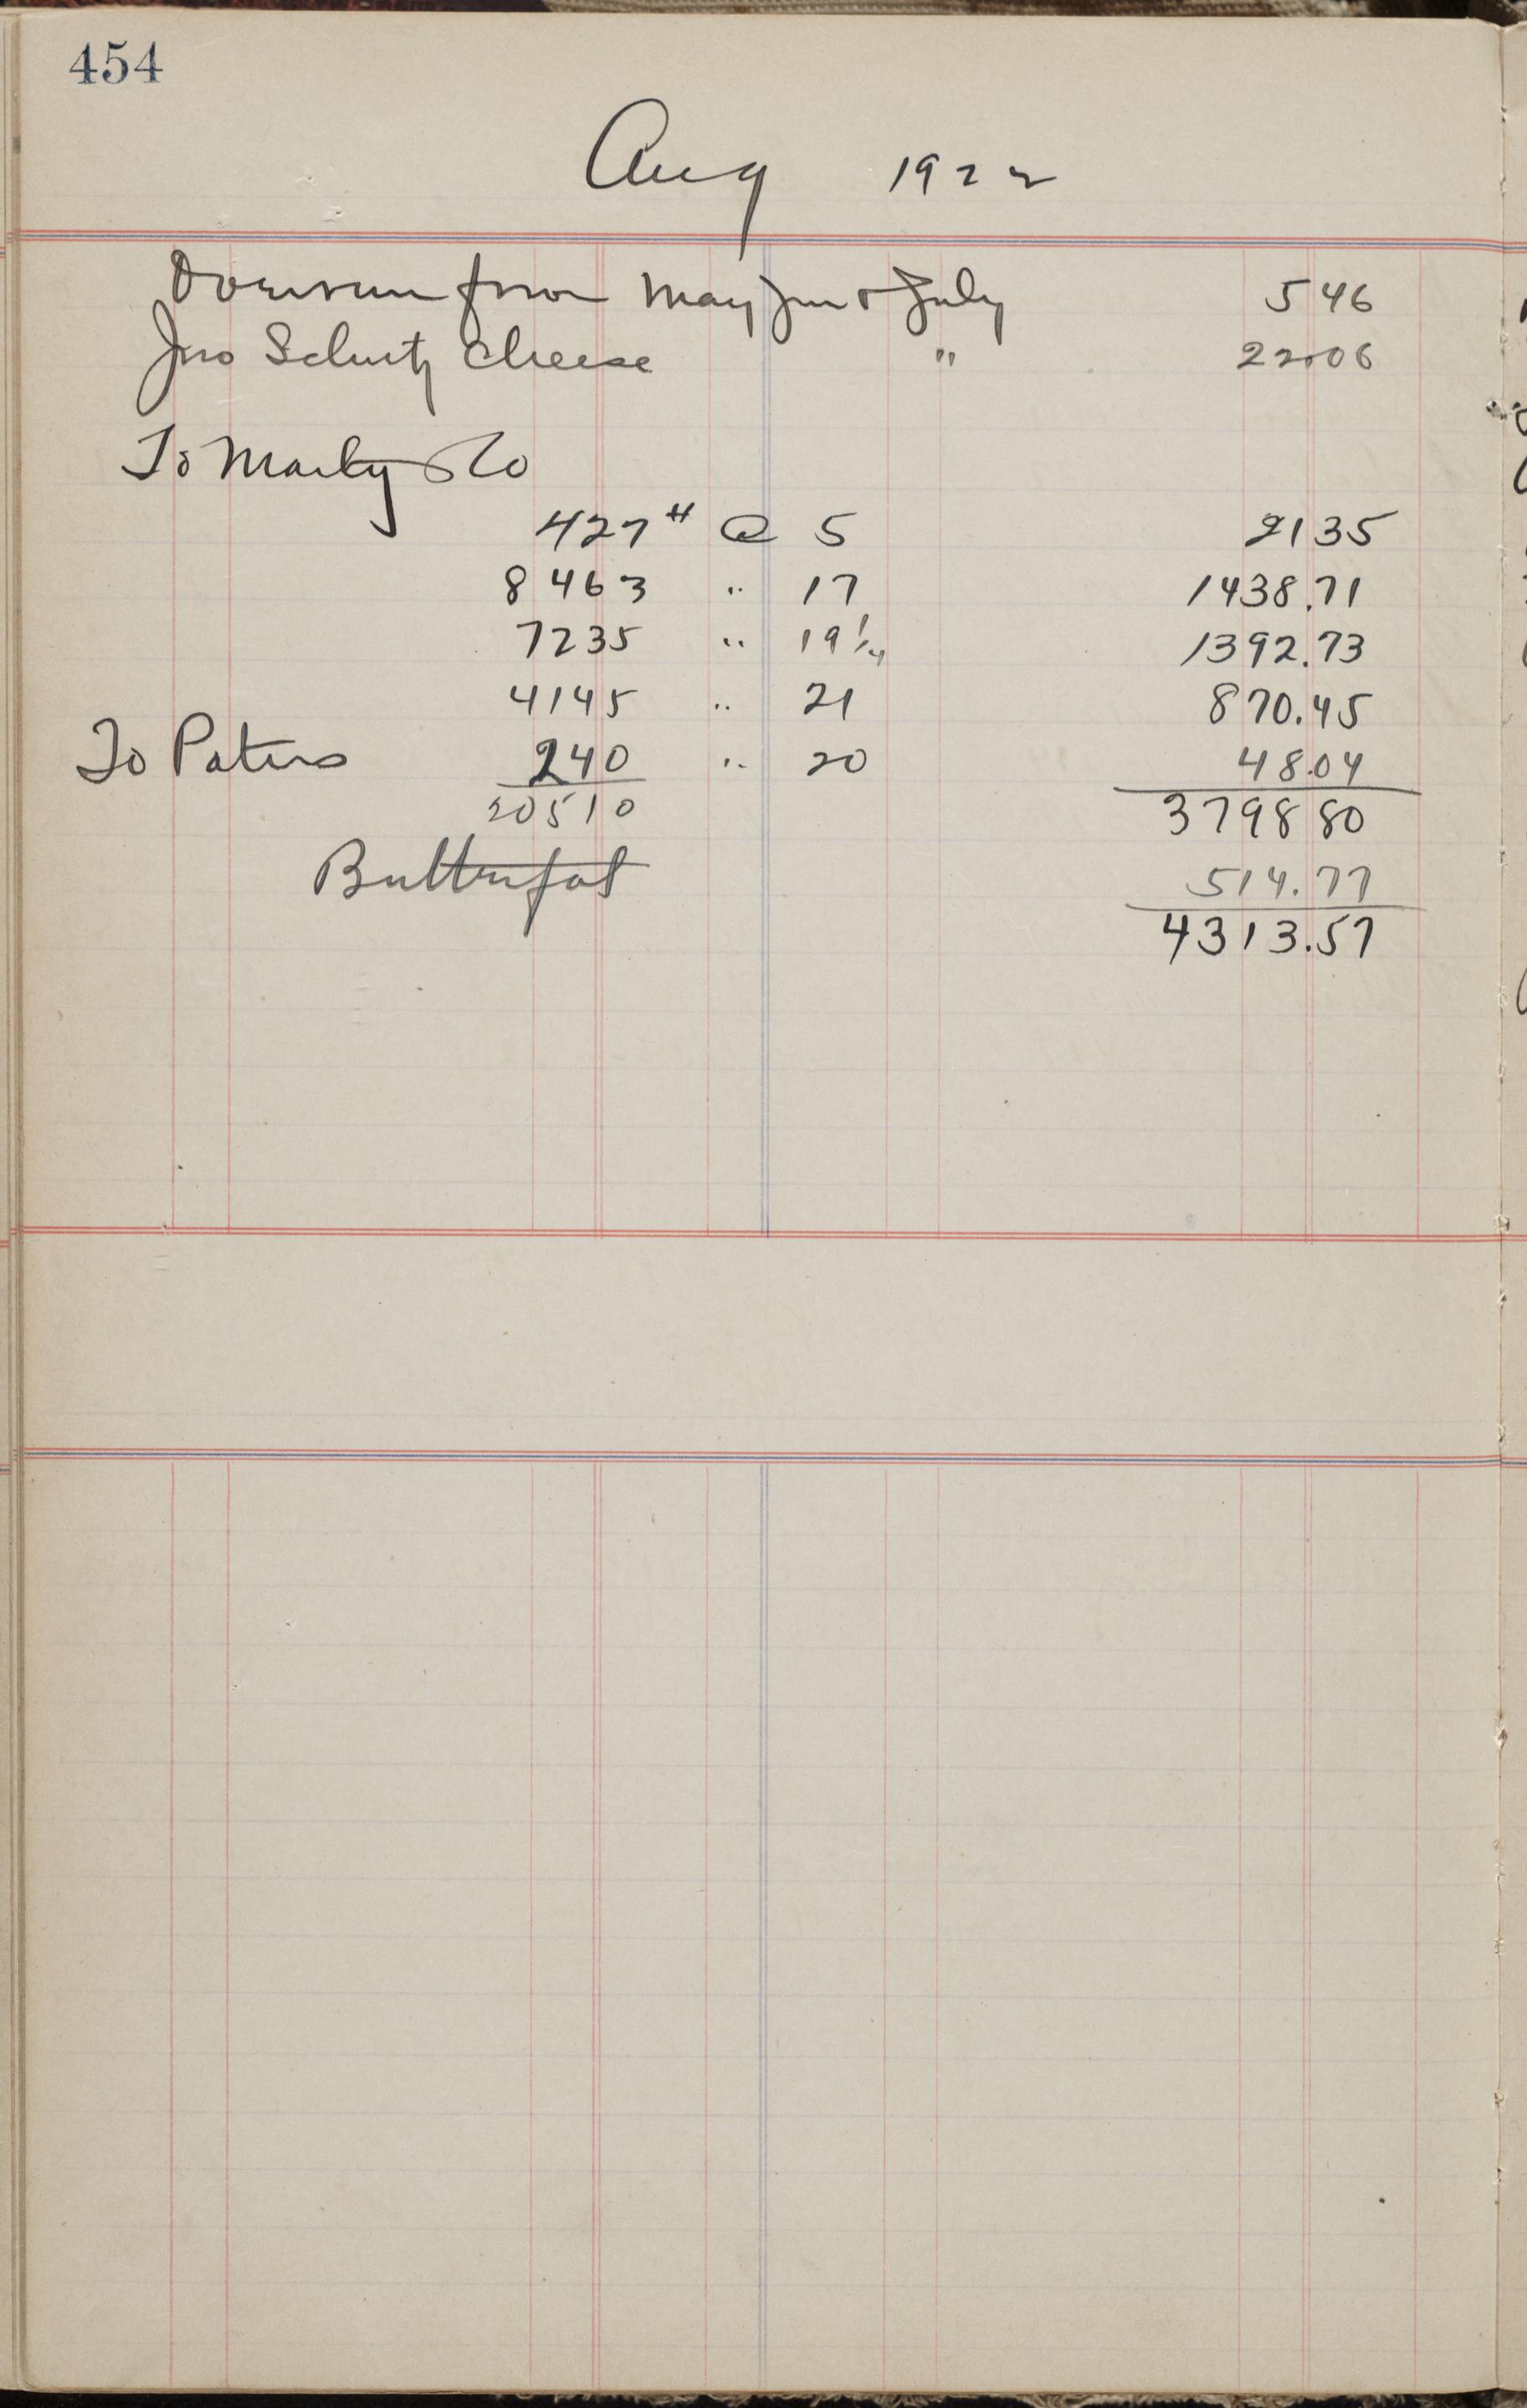 454
Aug 1922
Overrun from May Jun & July 546
Jno Schutz Cheese " 22.06
To Marty & Co
427 # @ 5 2135
8463 " 17 1438.71
7235 " 19 1/4 1392.73
4145 " 21 870.45
To Paters 240 " 20 48.04
20510 3798 80
Butterfat 514.77
4313.57